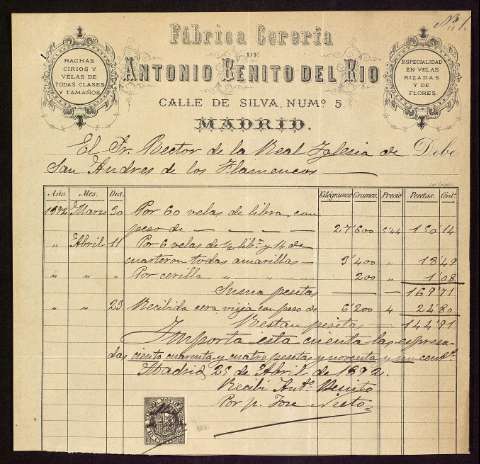 Nº 1.
Fábrica Cereria
DE
ANTONIO BENITO DEL RIO
CALLE DE SILVA, NUMº 5
MADRID.
HACHAS
CIRIOS Y
VELAS DE
TODAS CLASES
Y TAMAÑOS
ESPECIALIDAD
EN VELAS
RIZADAS
Y DE
FLORES.
El Sr. Rector de la Real Iglesia de Debe
San Andres de los Flamencos
Año. Mes. Dia. Kilógramos Gramos. Precio Pesetas. Cents.
1872 Marzo 20 Por 60 velas de libra, con
peso de 27'600
" Abril 11 Por 6 velas de ½ lib. y 14 de
cuarteron todas amarillas 3'400
" " " Por cerilla " 200 " 1 08
Suma pesetas
" " 23 Recibida cera vieja con peso de 6'200 4 24'80
Restan pesetas 144'91
Importa esta cuenta las expresa-
das ciento cuarenta y cuatro pesetas y noventa y un cents.
Madrid 23 de Abril de 1872.
Recibí Antº Benito
Por p. Jose Nieto